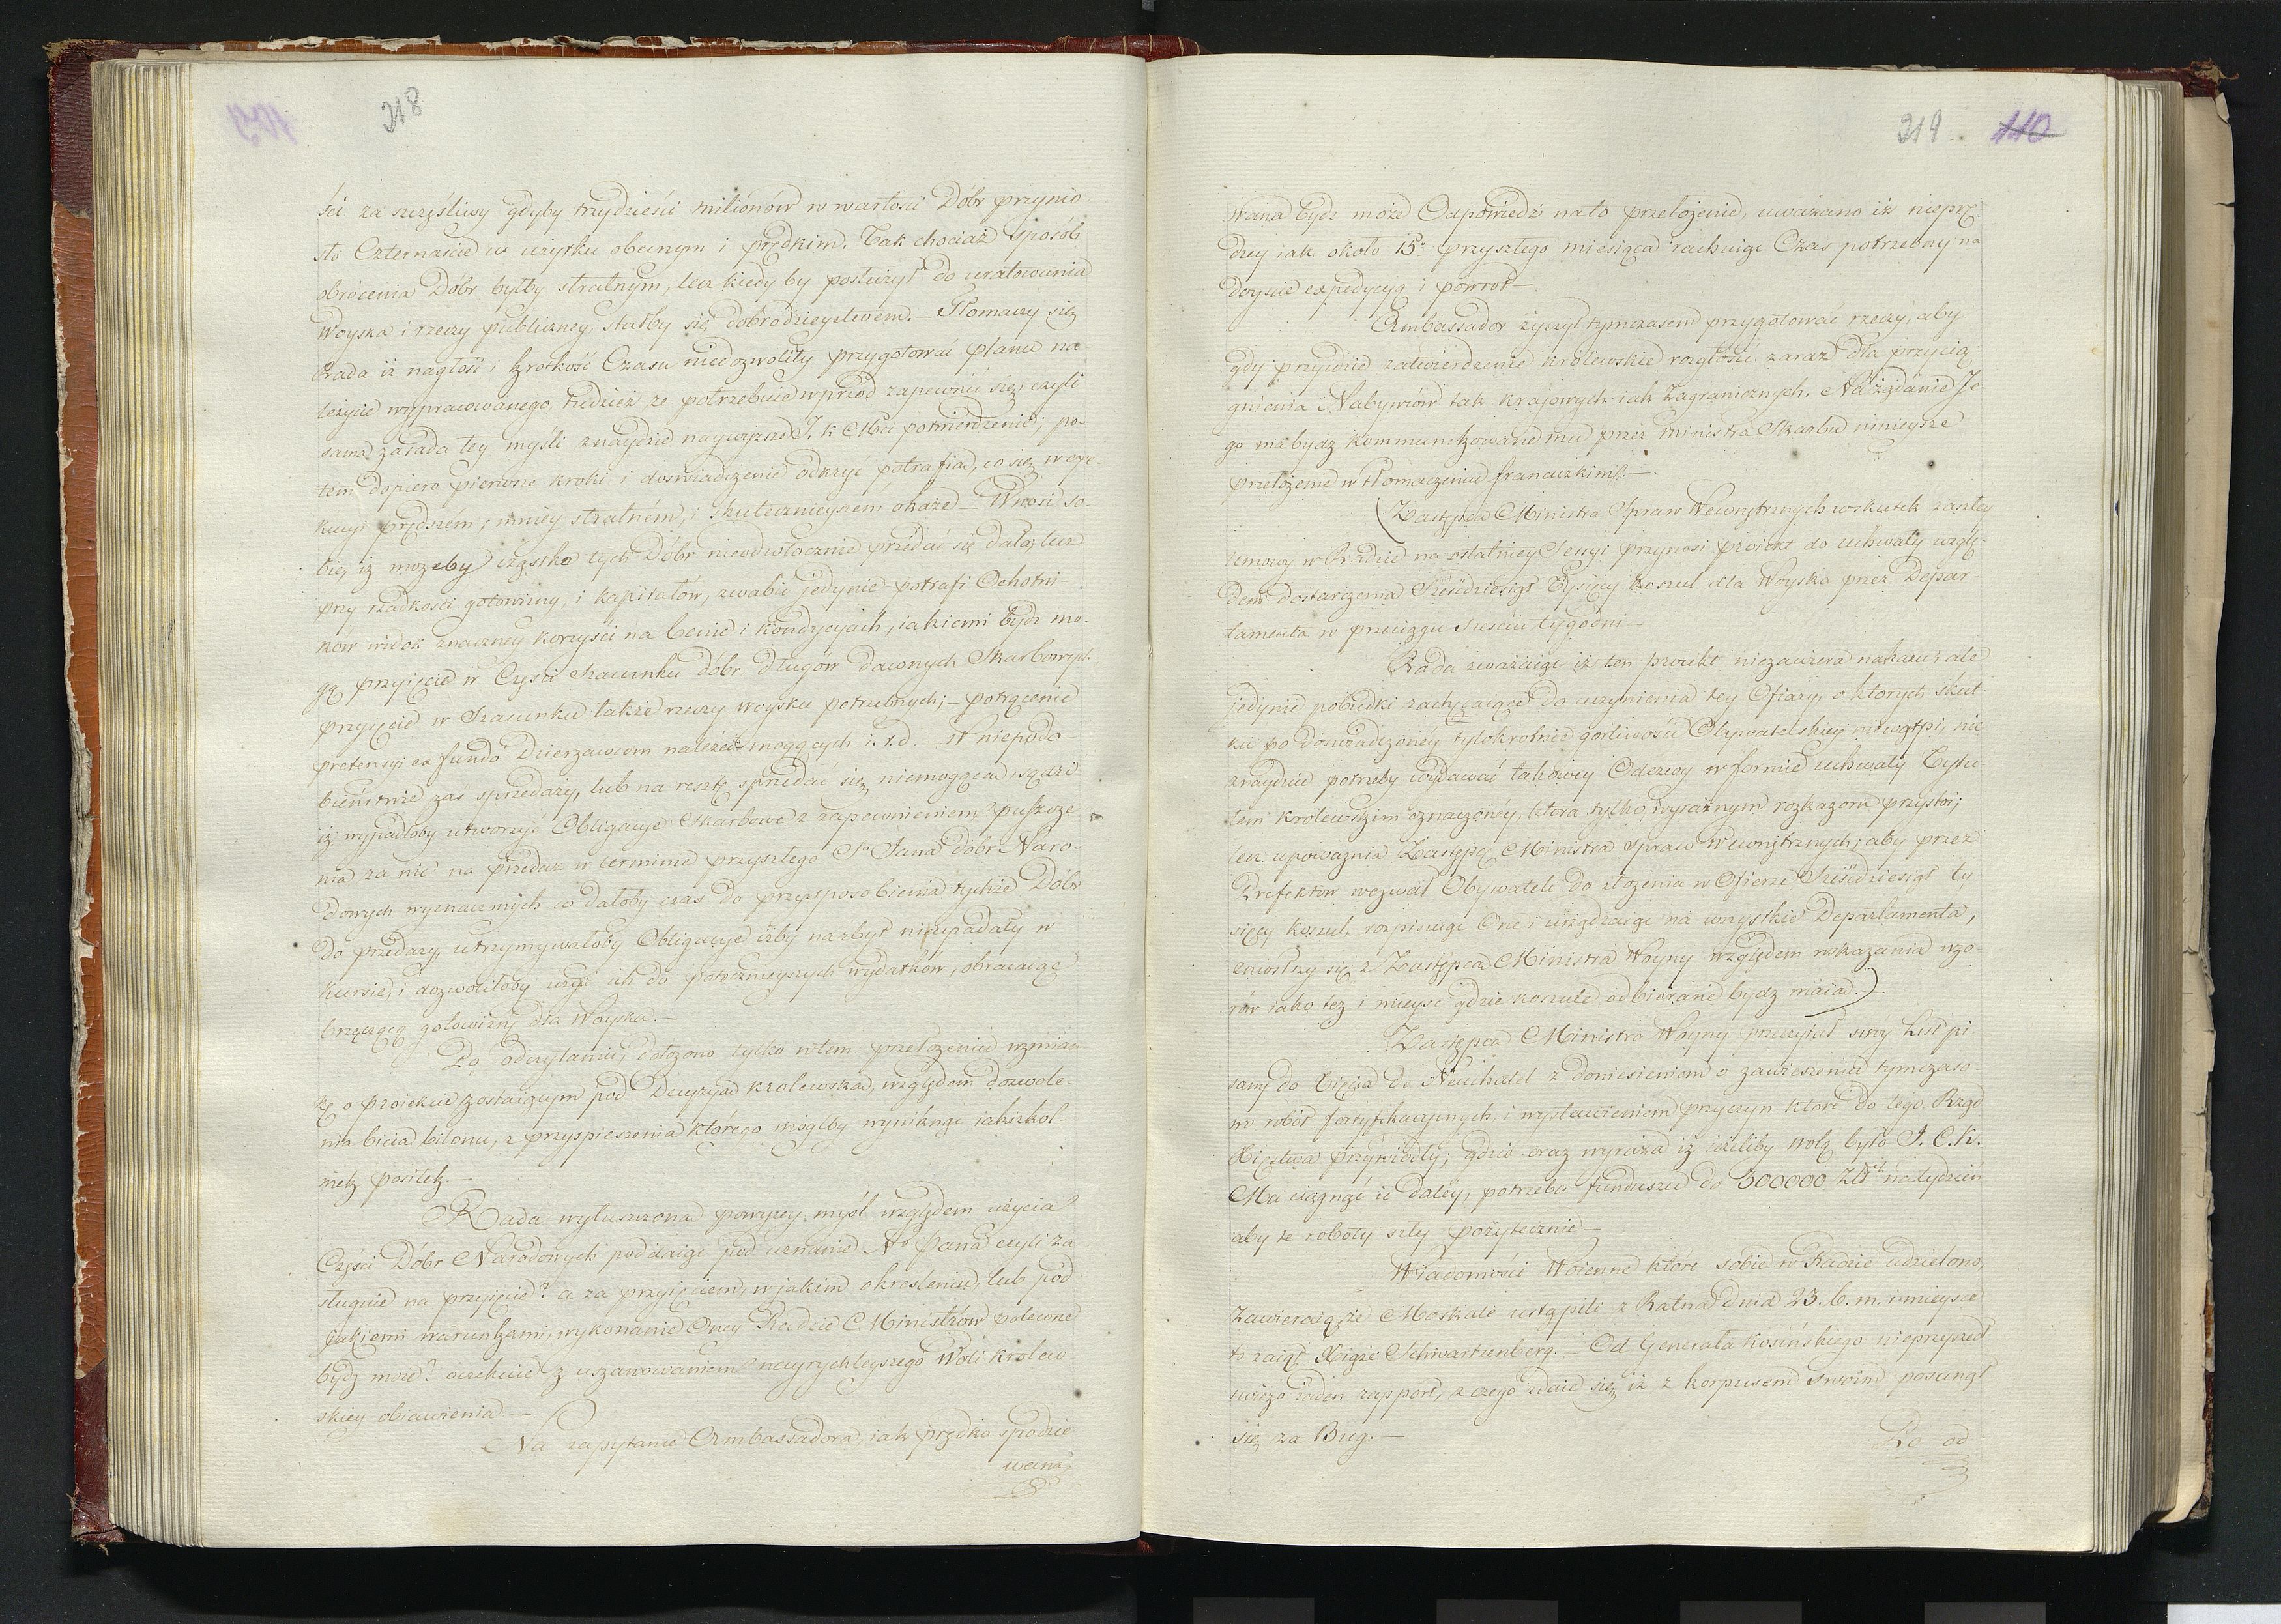 218
ści za szczęśliwy gdyby trzydzieści milionów w wartości Dóbr przynio-
sło Czternaście w użytku obecnym i prędkim. Tak chociaż sposób
obrócenia Dóbr byłby stratnym, lecz kiedy by posłużył do uratowania
Woyska i rzeczy publiczney, stałby się dobrodzieystwem. — Tłomaczy się
Rada iż nagłość i krotkość Czasu niedozwoliły przygotować planu na-
leżycie wypracowanego, tudzież że potrzebuie wprzód zapewnić się, czyli
sama zasada tey myśli znaydzie naywyższe J. K Mci potwierdzenie; po-
tem dopiero pierwsze kroki i doswiadczenie odkryć potrafią, co się w exe-
kucyi prędszém, mniey stratném, i skutecznieyszém okaże — Wnosi so-
bie, iż możeby cząstka tych Dóbr nieodwłocznie przedać się dała, lecz
przy rzadkości gotowizny i kapitałów, zwabić jedynie potrafi Ochotni-
ków widok znaczney korzyści na Cenie i kondycyach, iakiemi bydz mo-
gą przyięcie w Części Szacunku dóbr, Długów dawnych Skarbowych
przyięcie w Szacunku także rzeczy woysku potrzebnych; — potrącenie
pretensyi ex fundo Dzierzawcom należeć mogących i. t. d. — W niepodo-
bieństwie zaś sprzedaży, lub na resztę sprzedać się niemogącą, sądzi
iż wypadłoby utworzyć Obligacye Skarbowe z zapewnieniem puszcze-
nia za nie na przedaż w terminie przyszłego So Jana dóbr Naro-
dowych wyznaczonych co dałoby czas do przysposobienia tychże Dóbr
do przedaży, utrzymywałoby Obligacye iżby nazbyt nieupadały w
kursie, i dozwoliłoby użyć ich do potocznieyszych wydatków, obracaiąc
brzęczącą gotowiznę dla Woyska. —
Po odczytaniu, dołożono tylko w tem przełożeniu wzmian-
kę o proiekcie zostaiącym pod Decyzyą krolewską, względem dozwole-
nia bicia bilonu, z przyspieszenia którego mógłby wyniknąć iakiżkol-
wiek posiłek. —
Rada wyłuszczoną powyżey myśl względem użycia
Części Dóbr Narodowych poddaiąc pod uznanie No Pana czyli za-
sługuie na przyięcie? a za przyięciem, w jakim okresleniu, lub pod
jakiemi warunkami, wykonanie Oney Radzie Ministrów polecone
bydz może? oczekuie z uszanowaniem nayrychleyszego Woli krolew-
skiey obiawienia —
Na zapytanie Ambassadora, iak prędko spodzie-
wana
219
110
wana bydz może Odpowiedź na to przełożenie, uważano iż niepręd-
dzey iak około 15º przyszłego miesiąca rachuiąc Czas potrzebny na
doyście expedycyą i powrot —
Ambassador życzył tymczasem przygotować rzeczy, aby
gdy przyidzie zatwierdzenie krolewskie rozgłosić zaraz dla przycią-
gnienia Nabywców tak krajowych iak Zagranicznych. Na żądanie Je-
go ma bydz kommunikowane mu przez Ministra Skarbu ninieysze
przełożenie w tłomaczeniu francuzkim. —
(Zastępca Ministra Spraw Wewnętrznych wskutek zaszłey
umowy w Radzie na ostatniey Sessyi przynosi proiekt do uchwały wzglę-
dem dostarczenia Sześćdziesiąt Tysięcy koszul dla Woyska przez Depar-
tamenta w przeciągu sześciu tygodni —
Rada uważaiąc iż ten proiekt niezawiera nakazu, ale
jedynie pobudki zachęcaiące do uczynienia tey Ofiary, o ktorych skut-
ku po doswiadczoney tylokrotnie gorliwości Obywatelskiey niewątpi, nie
znayduie potrzeby wydawać takowey Odezwy w formie uchwały Tytu-
łem królewskim oznaczoney, ktora tylko wyraźnym rozkazom przystoi;
lecz upoważnia Zastępcę Ministra Spraw Wewnętrznych, aby przez
Prefektów wezwał Obywateli do złożenia w Ofierze Sześćdziesiąt ty-
sięcy koszul, rozpisuiąc One i urządzaiąc na wszystkie Departamenta,
zniosłszy się z Zastępcą Ministra Woyny względem wskazania wzo-
rów iako też i mieysc gdzie koszule odbierane bydz maią.)
Zastępca Ministra Woyny przeczytał swoy List pi-
sany do Xięcia de Neuchatel z doniesieniem o zawieszeniu tymczaso-
wo robót fortyfikacyinych, i wystawieniem przyczyn ktore do tego Rząd
Xięstwa przywiodły; gdzie oraz wyraża iż ieżeliby wolą było J. C. K.
Mci ciągnąć ie daley, potrzeba funduszu do 300000 Złtch na tydzień
aby te roboty szły pożytecznie —
Wiadomości Woienne ktore sobie w Radzie udzielono,
zawieraią że Moskale ustąpili z Ratna dnia 23. b. m. i mieysce
to zaiął Xiąże Schwartzenberg. — Od Generała Kosińskiego nieprzyszedł
swieżo żaden rapport, z czego zdaie się iż z korpusem swoim posunął
się za Bug. —
Po od-